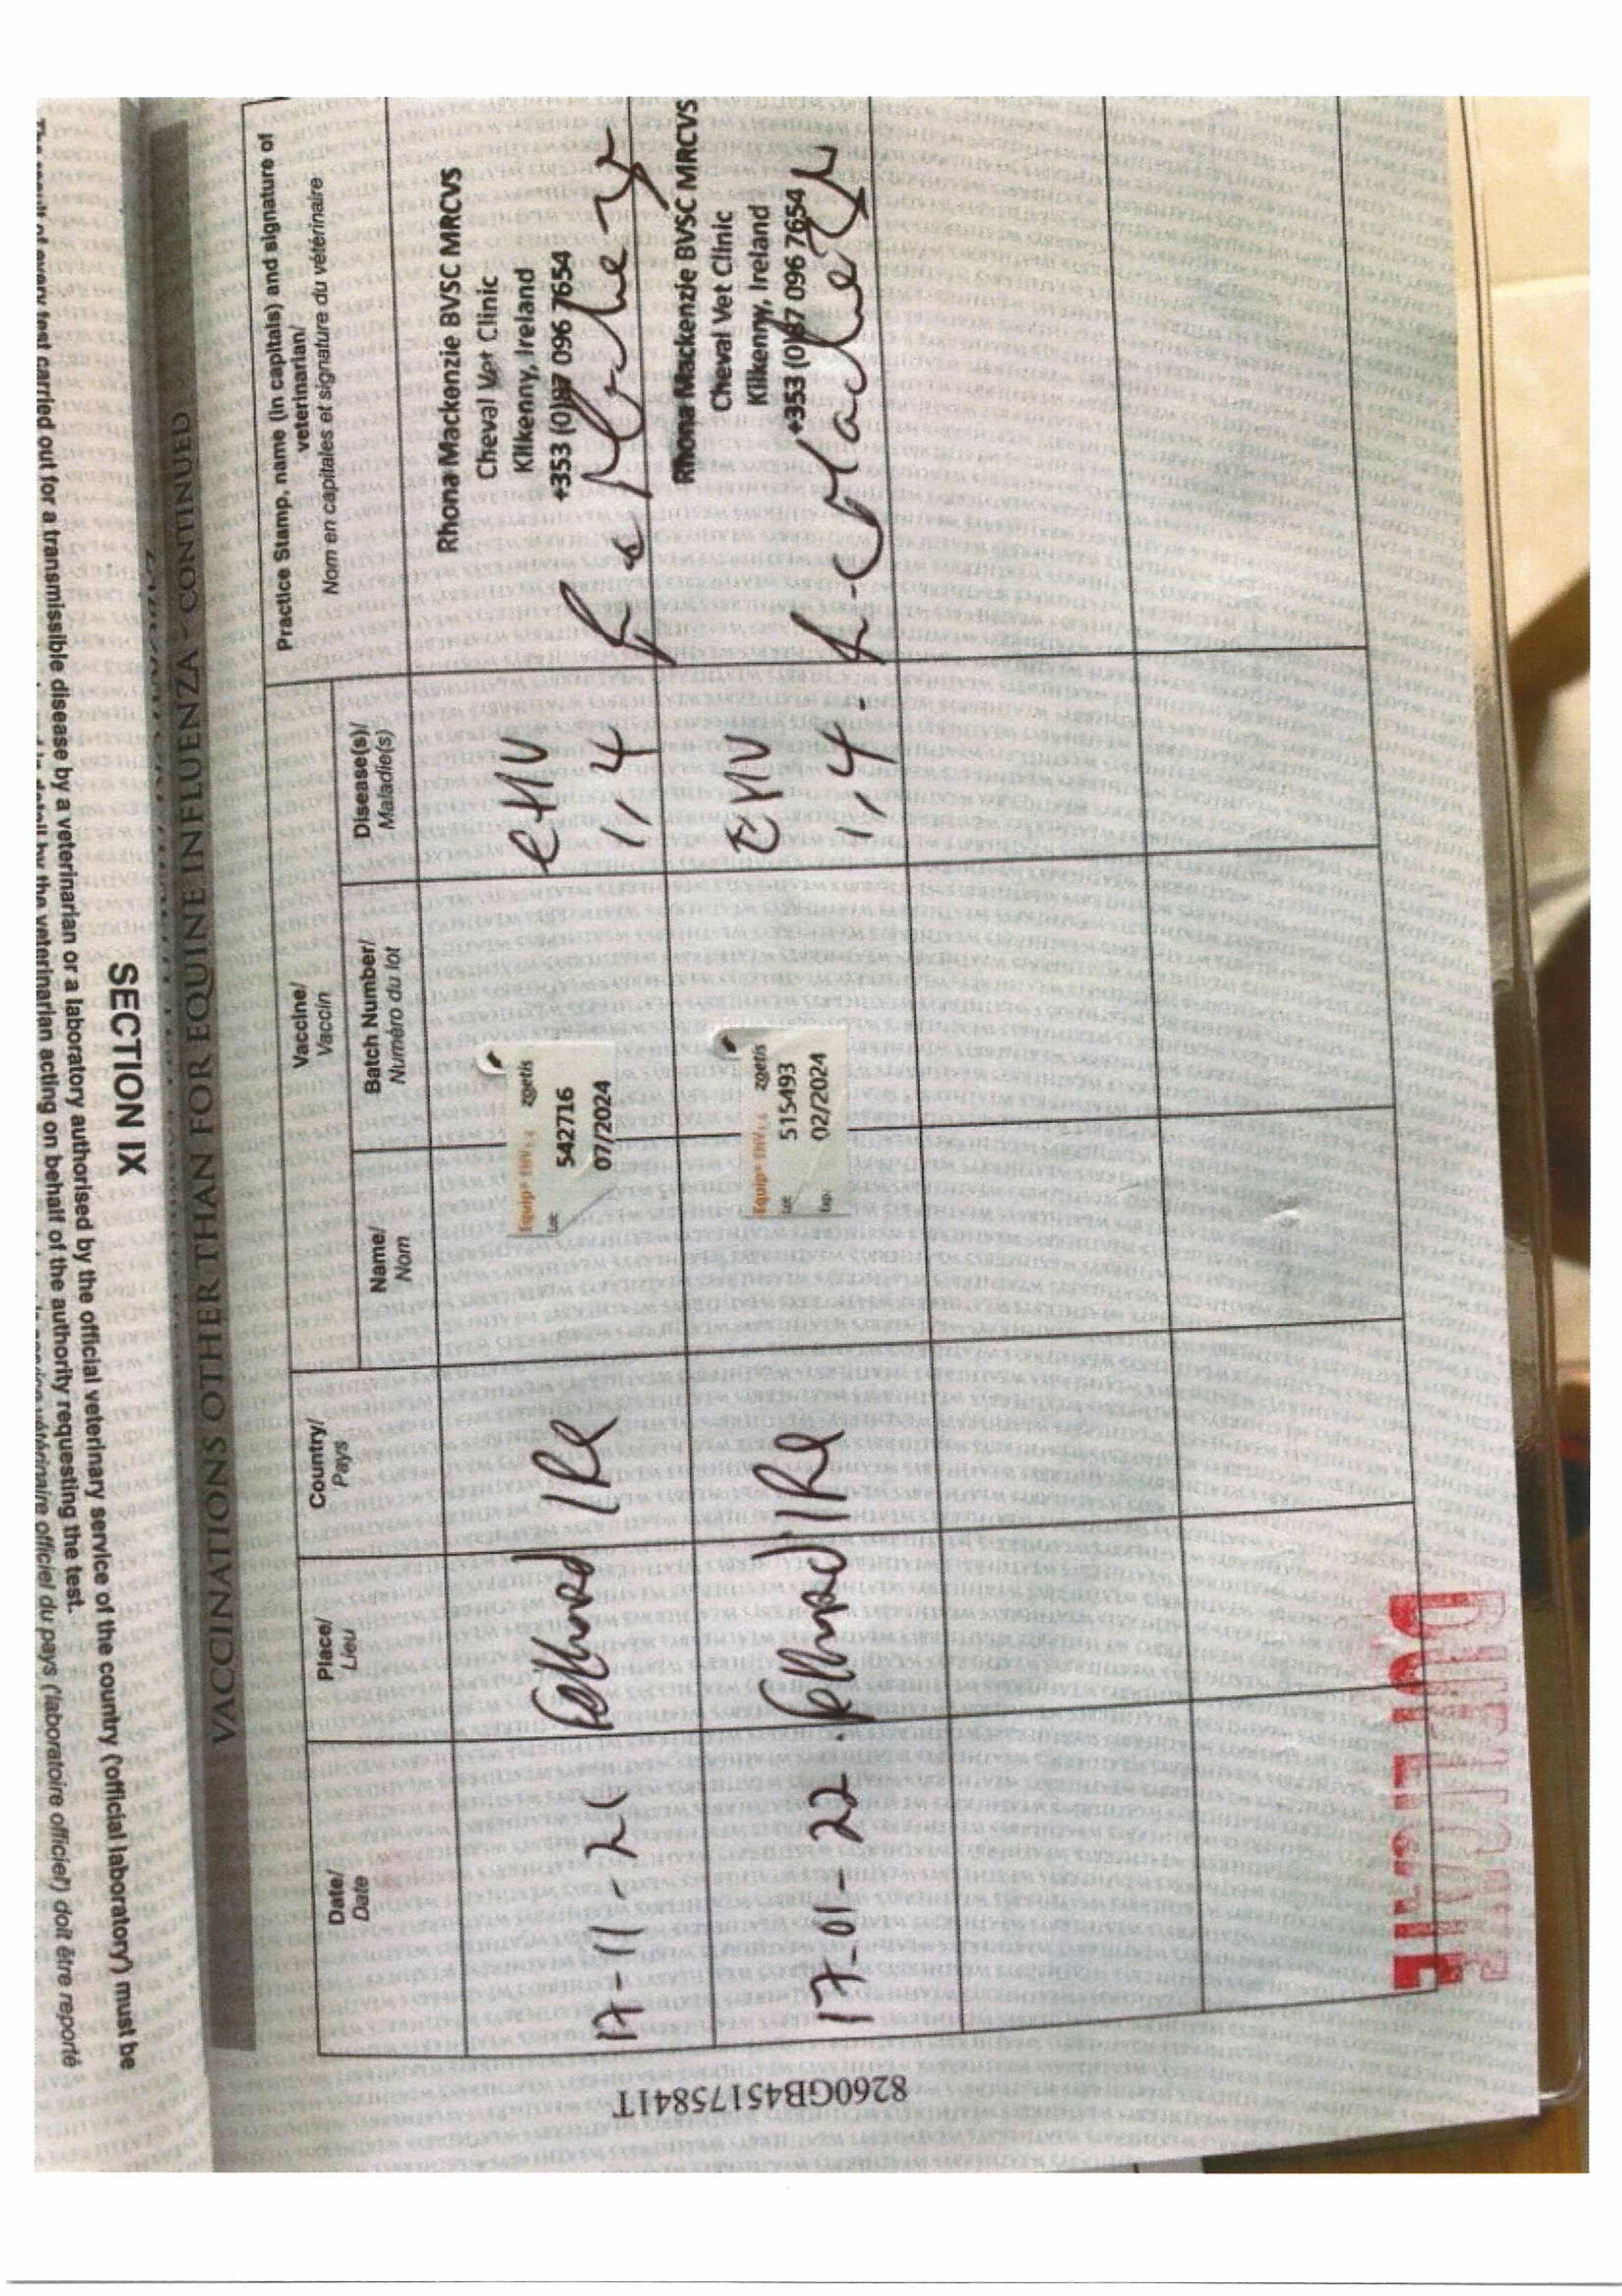 The result of every test carried out for a transmissible disease by a veterinarian or a laboratory authorised by the official veterinary service of the country ('official laboratory') must be
by the veterinarian acting on behalf of the authority requesting the test.
vétérinaire officiel du pays ('laboratoire officiel') doit être reporté
SECTION IX
VACCINATIONS OTHER THAN FOR EQUINE INFLUENZA - CONTINUED
Date/
Date
Place/
Lieu
Country/
Pays
Vaccine/
Vaccin
Name/
Nom
Batch Number/
Numéro du lot
Diseases(s)/
Maladie(s)
Practice Stamp, name (in capitals) and signature of
veterinarian/
Nom en capitales et signature du vétérinaire
17-11-21
IRE
Equip® EHV1,4 zoetis
Lot: 542716
07/2024
EHV
1,4
Rhona Mackenzie BVSC MRCVS
Cheval Vet Clinic
Kilkenny, Ireland
+353 (0)87 096 7654
17-01-22
IRE
Equip® EHV1,4 zoetis
Lot 515493
Exp. 02/2024
EHV
1,4.
Rhona Mackenzie BVSC MRCVS
Cheval Vet Clinic
Kilkenny, Ireland
+353 (0)87 096 7654
8260GB45175841T
DUPLICATE